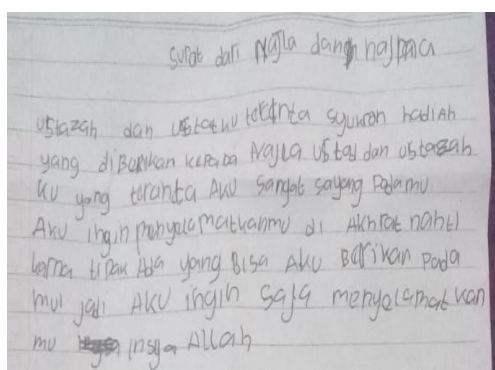 surat dari Najla dan najpaa
ustazah dan ustatku tercinta syukron hadiah
yang diBarikan kepaba Najla ustad dan ustazah
ku yang taranta Aku sangat sayang padamu
Aku ingin menyelamatkanmu di Akhrat nahti
karna tipak Ada yang Bisa Aku Barikan pada
mui jadi AKU ingin saja menyelamatkan
mu insya Allah